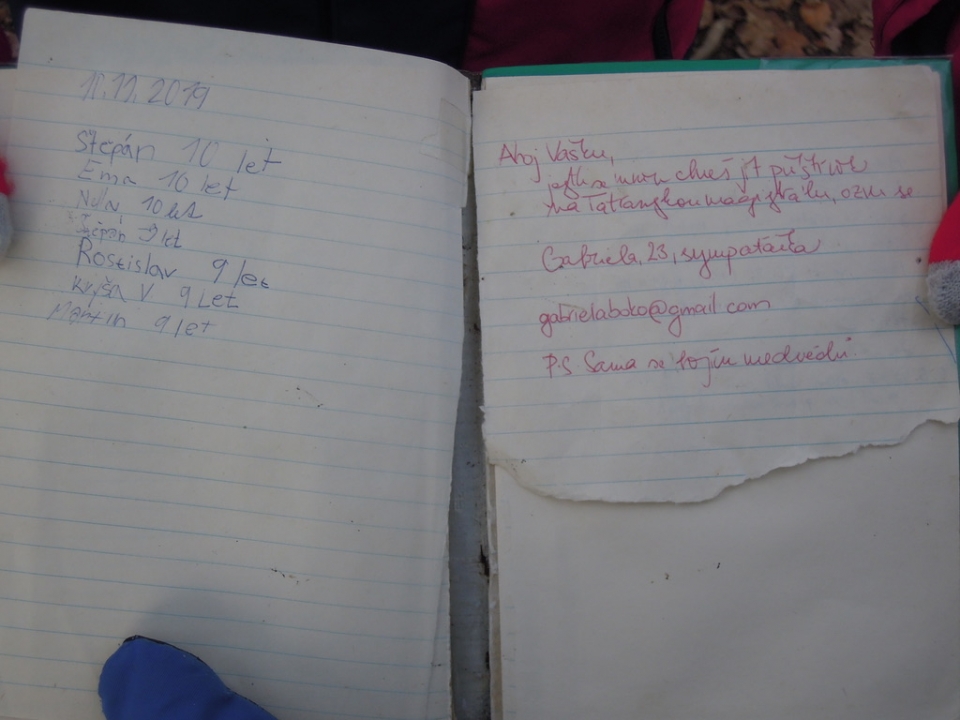 11.11.2019
Štěpán 10 let
Ema 10 let
10 let
Štěpán 9 let
Rostislav 9 let
V 9 Let
Martin 9 let
Ahoj Vašku,
jestli se mnou chceš jít příští rok
na Tatranskou magistrálu, ozvi se
Gabriela, 23, sympaťačka
gabrielaboko@gmail.com
P.S Sama se bojím medvědů